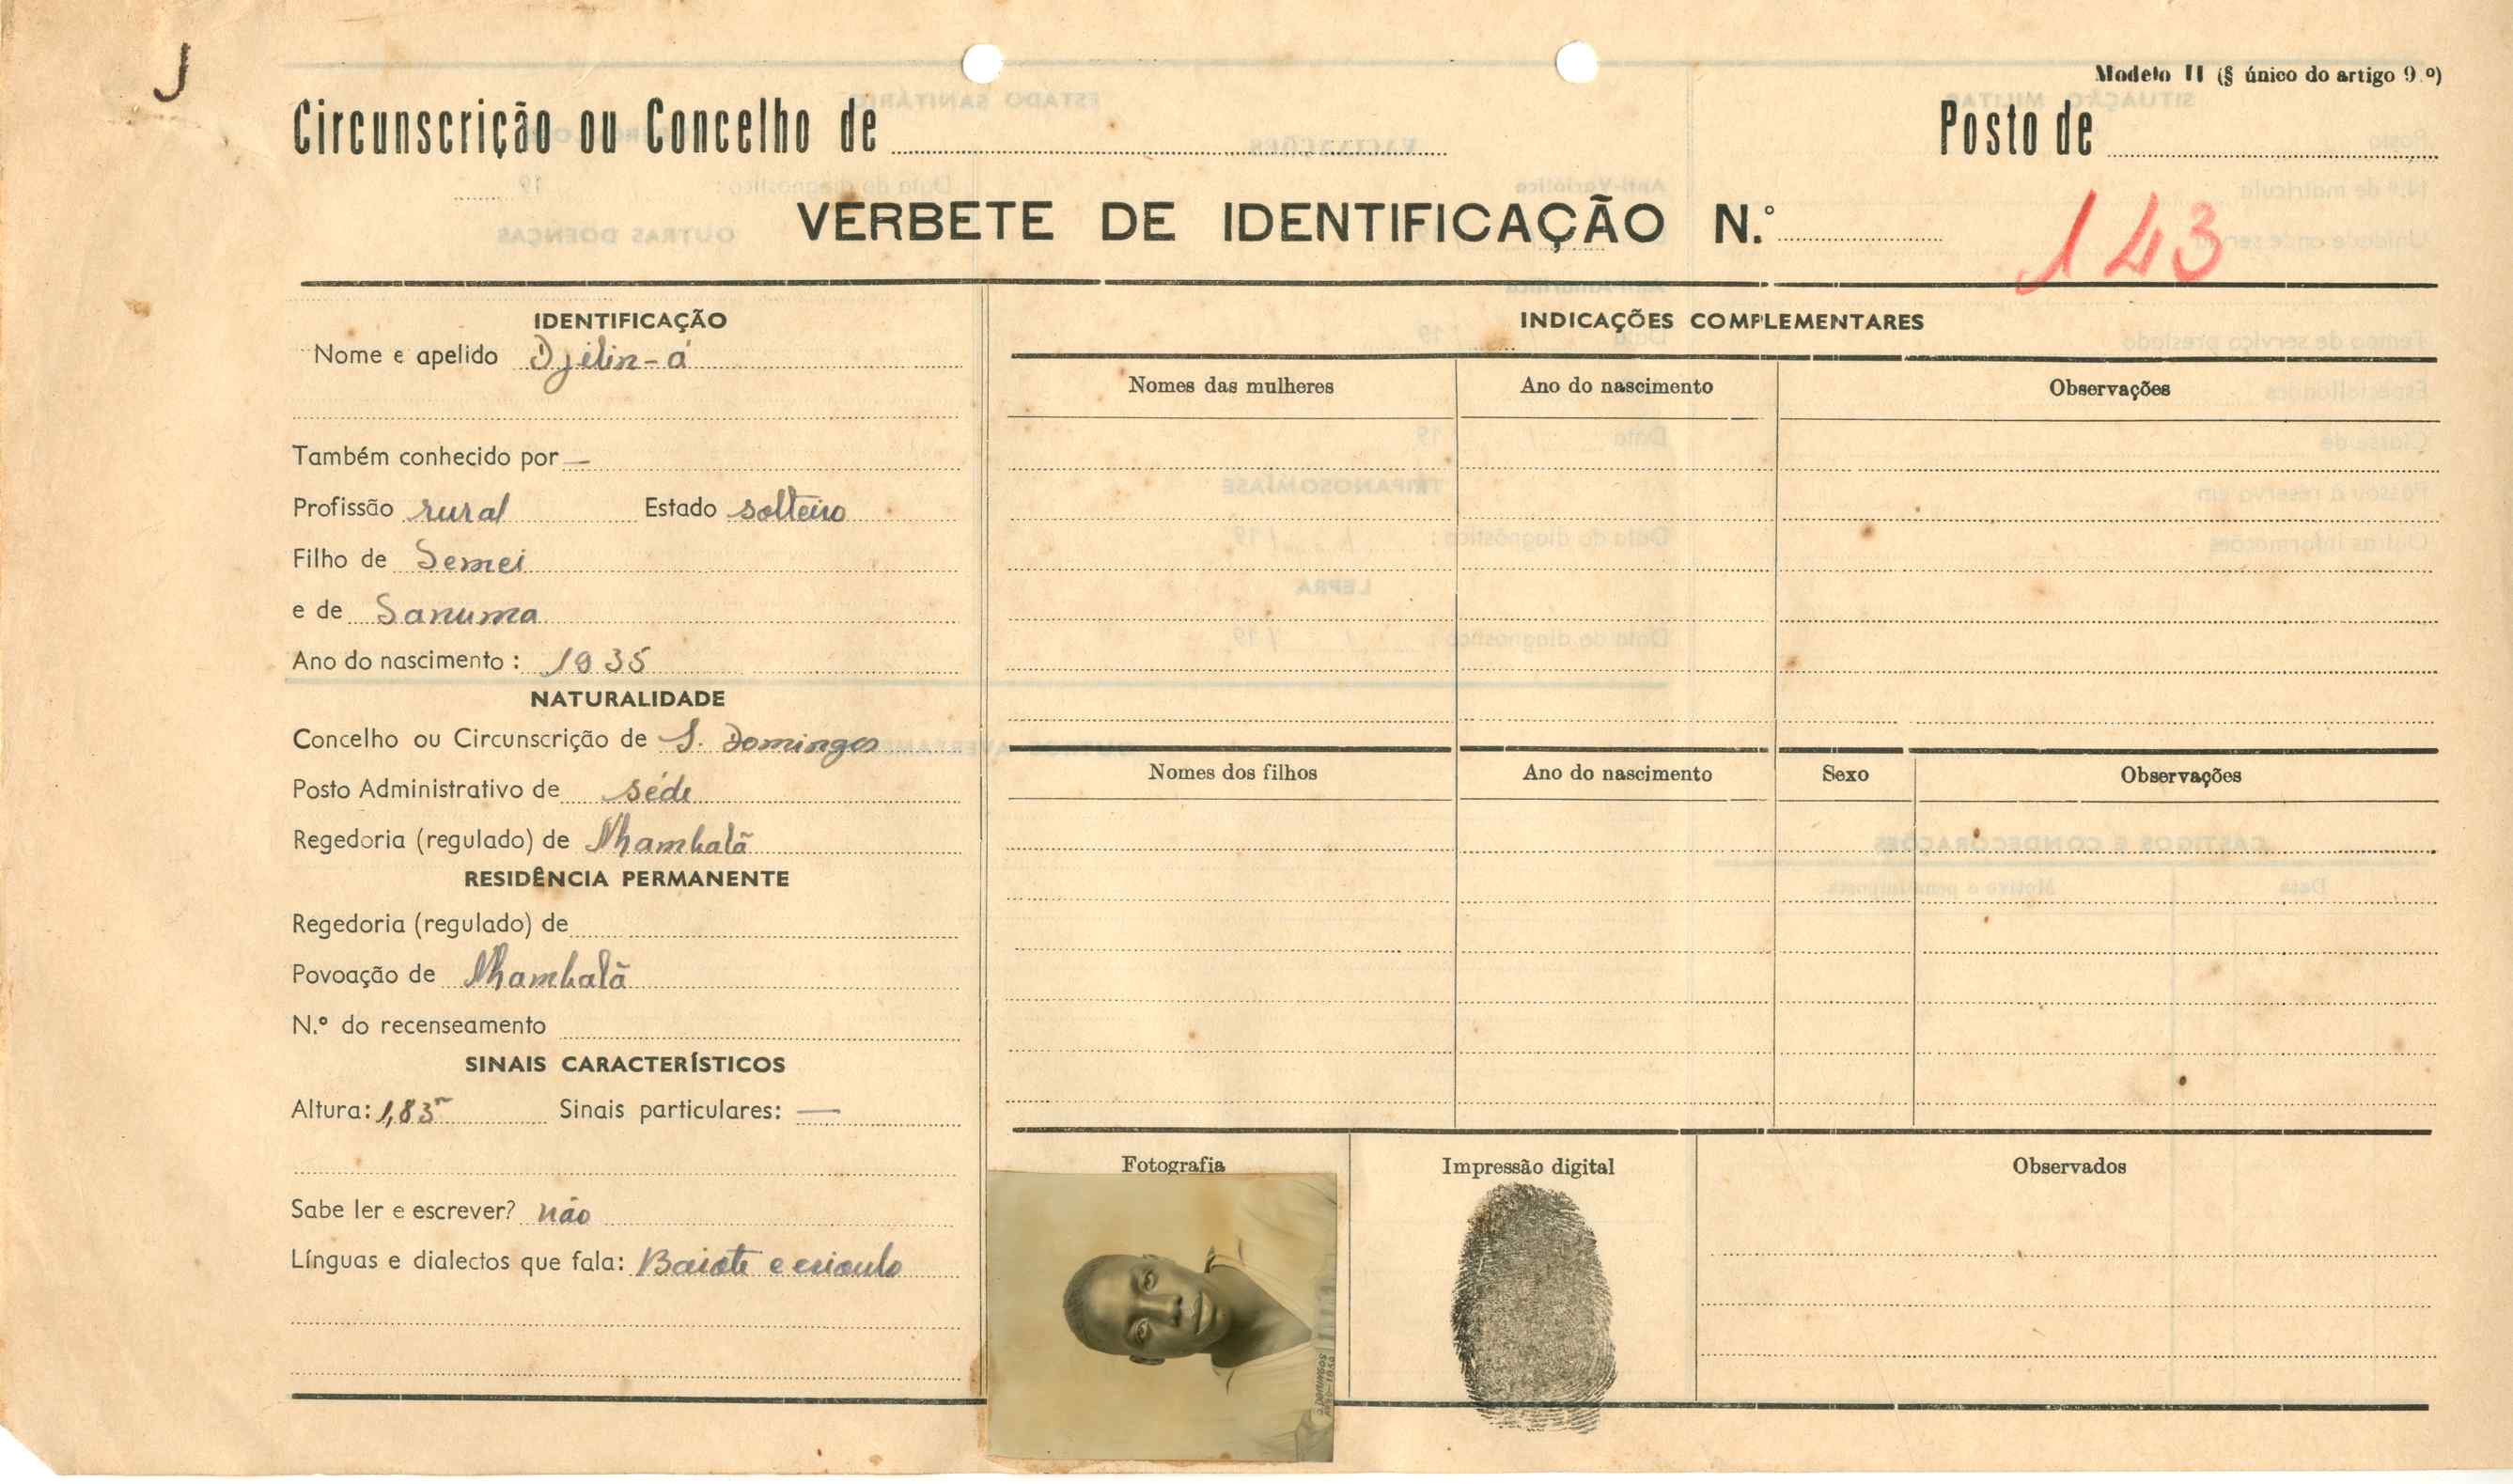 J
Modelo II (§ único do artigo 9.º)
Circunscrição ou Concelho de
Posto de
VERBETE DE IDENTIFICAÇÃO N.º
143
IDENTIFICAÇÃO
Nome e apelido Djilin-á
Também conhecido por —
Profissão rural Estado solteiro
Filho de Semei
e de Sanuma
Ano do nascimento: 1935
NATURALIDADE
Concelho ou Circunscrição de S. Domingos
Posto Administrativo de séde
Regedoria (regulado) de Nhambalã
RESIDÊNCIA PERMANENTE
Regedoria (regulado) de
Povoação de Nhambalã
N.º do recenseamento
SINAIS CARACTERÍSTICOS
Altura: 1,83m Sinais particulares: —
Sabe ler e escrever? não
Línguas e dialectos que fala: Baiote e crioulo
INDICAÇÕES COMPLEMENTARES
Nomes das mulheres Ano do nascimento Observações
Nomes dos filhos Ano do nascimento Sexo Observações
Fotografia Impressão digital Observados